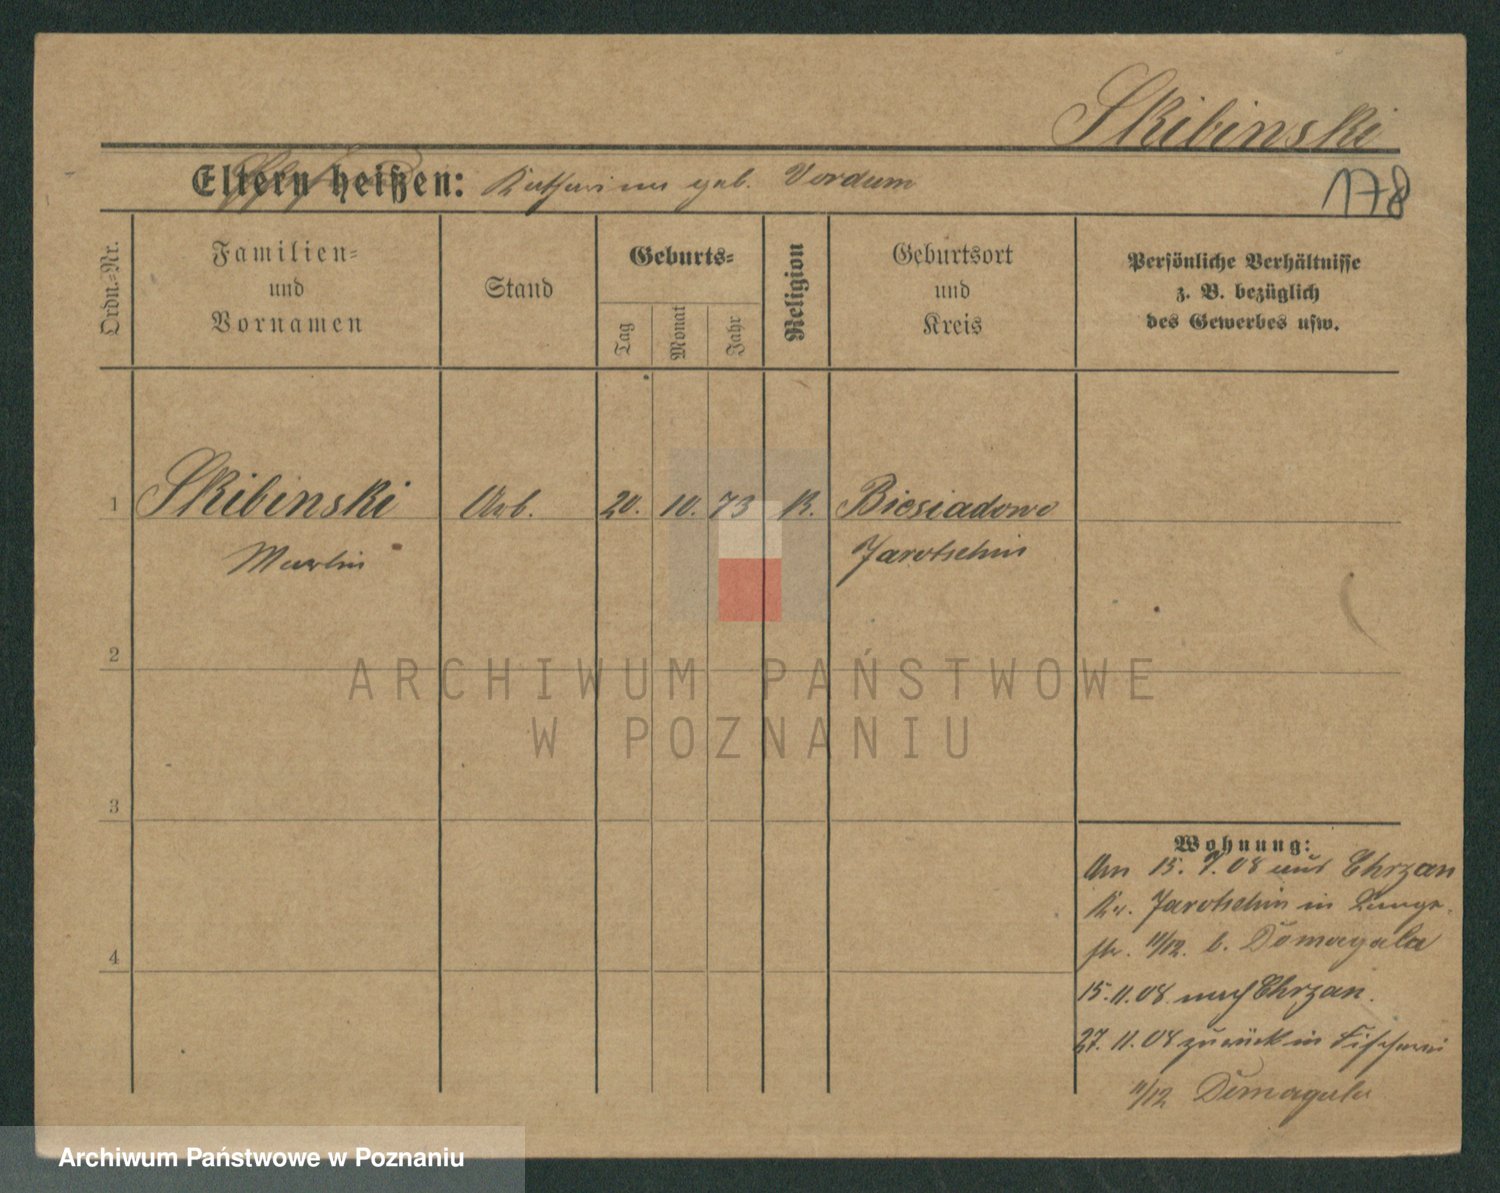 Skibinski
Eltern heißen: Katharina geb. Vordum
178
Ordn.-Nr.
Familien-
und
Vornamen
Stand
Geburts-
Tag
Monat
Jahr
Religion
Geburtsort
und
Kreis
Persönliche Verhältnisse
z. B. bezüglich
des Gewerbes usw.
1 Skibinski Arb. 20. 10. 73 K. Biesiadowo
Martin Jarotschin
2
3
4
Wohnung:
Am 15. 7. 08 aus Chrzan
Kr. Jarotschin in Lange-
str. 11/12. b. Domagala
15. 11. 08. nach Chrzan.
27. 11. 08 zurück in Fischerei
11/12 Domagala
ARCHIWUM PAŃSTWOWE
W POZNANIU
Archiwum Państwowe w Poznaniu